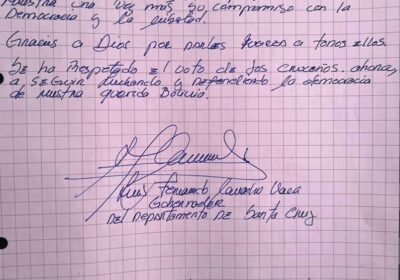 muestra una vez más su compromiso con la
Democracia y la Libertad.
Gracias a Dios por darles fuerzas a todos ellos.
Se ha Respetado el voto de los cruceños. ahora,
a seguir luchando y defendiendo la democracia
de nuestra querida Bolivia.
Luis Fernando Camacho Vaca
Gobernador
Del Departamento de Santa Cruz